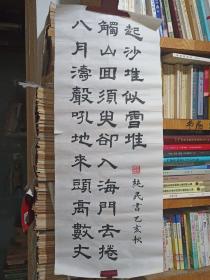 八月濤聲吼地來頭高數丈
觸山回須臾卻入海門去捲
起沙堆似雪堆
純民書乙亥秋